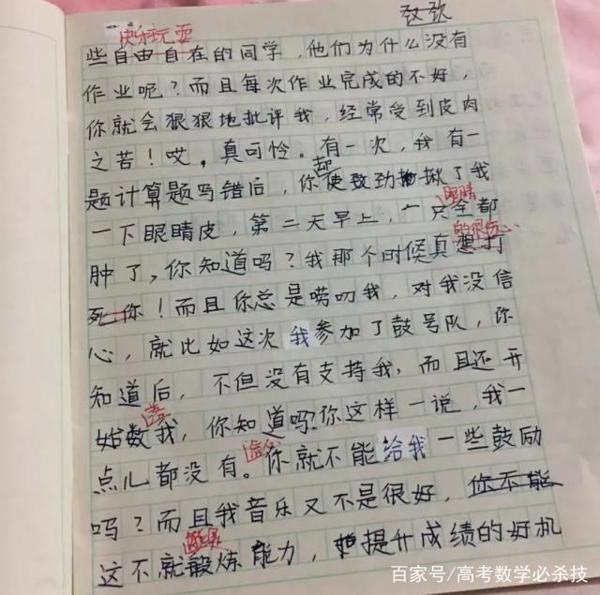 孜孜
快快玩耍
些自由自在的同学,他们为什么没有
作业呢?而且每次作业完成的不好,
你就会狠狠地批评我,经常受到皮肉
之苦!哎。真可怜。有一次,我有一
题计算题写错后,你使劲揪了我
眼睛
一下眼睛皮,第二天早上,一只全都
的很伤心
肿了,你知道吗?我那个时候真想打
死你!而且你总是唠叨我,对我没信
心,就比如这次我参加了鼓号队,你
知道后,不但没有支持我,而且还开
始数我,你知道吗?你这样一说,我一
点儿都没有。你就不能给我一些鼓励
吗?而且我音乐又不是很好,你不能
这不就锻炼能力,提升成绩的好机
百家号/高考数学必杀技